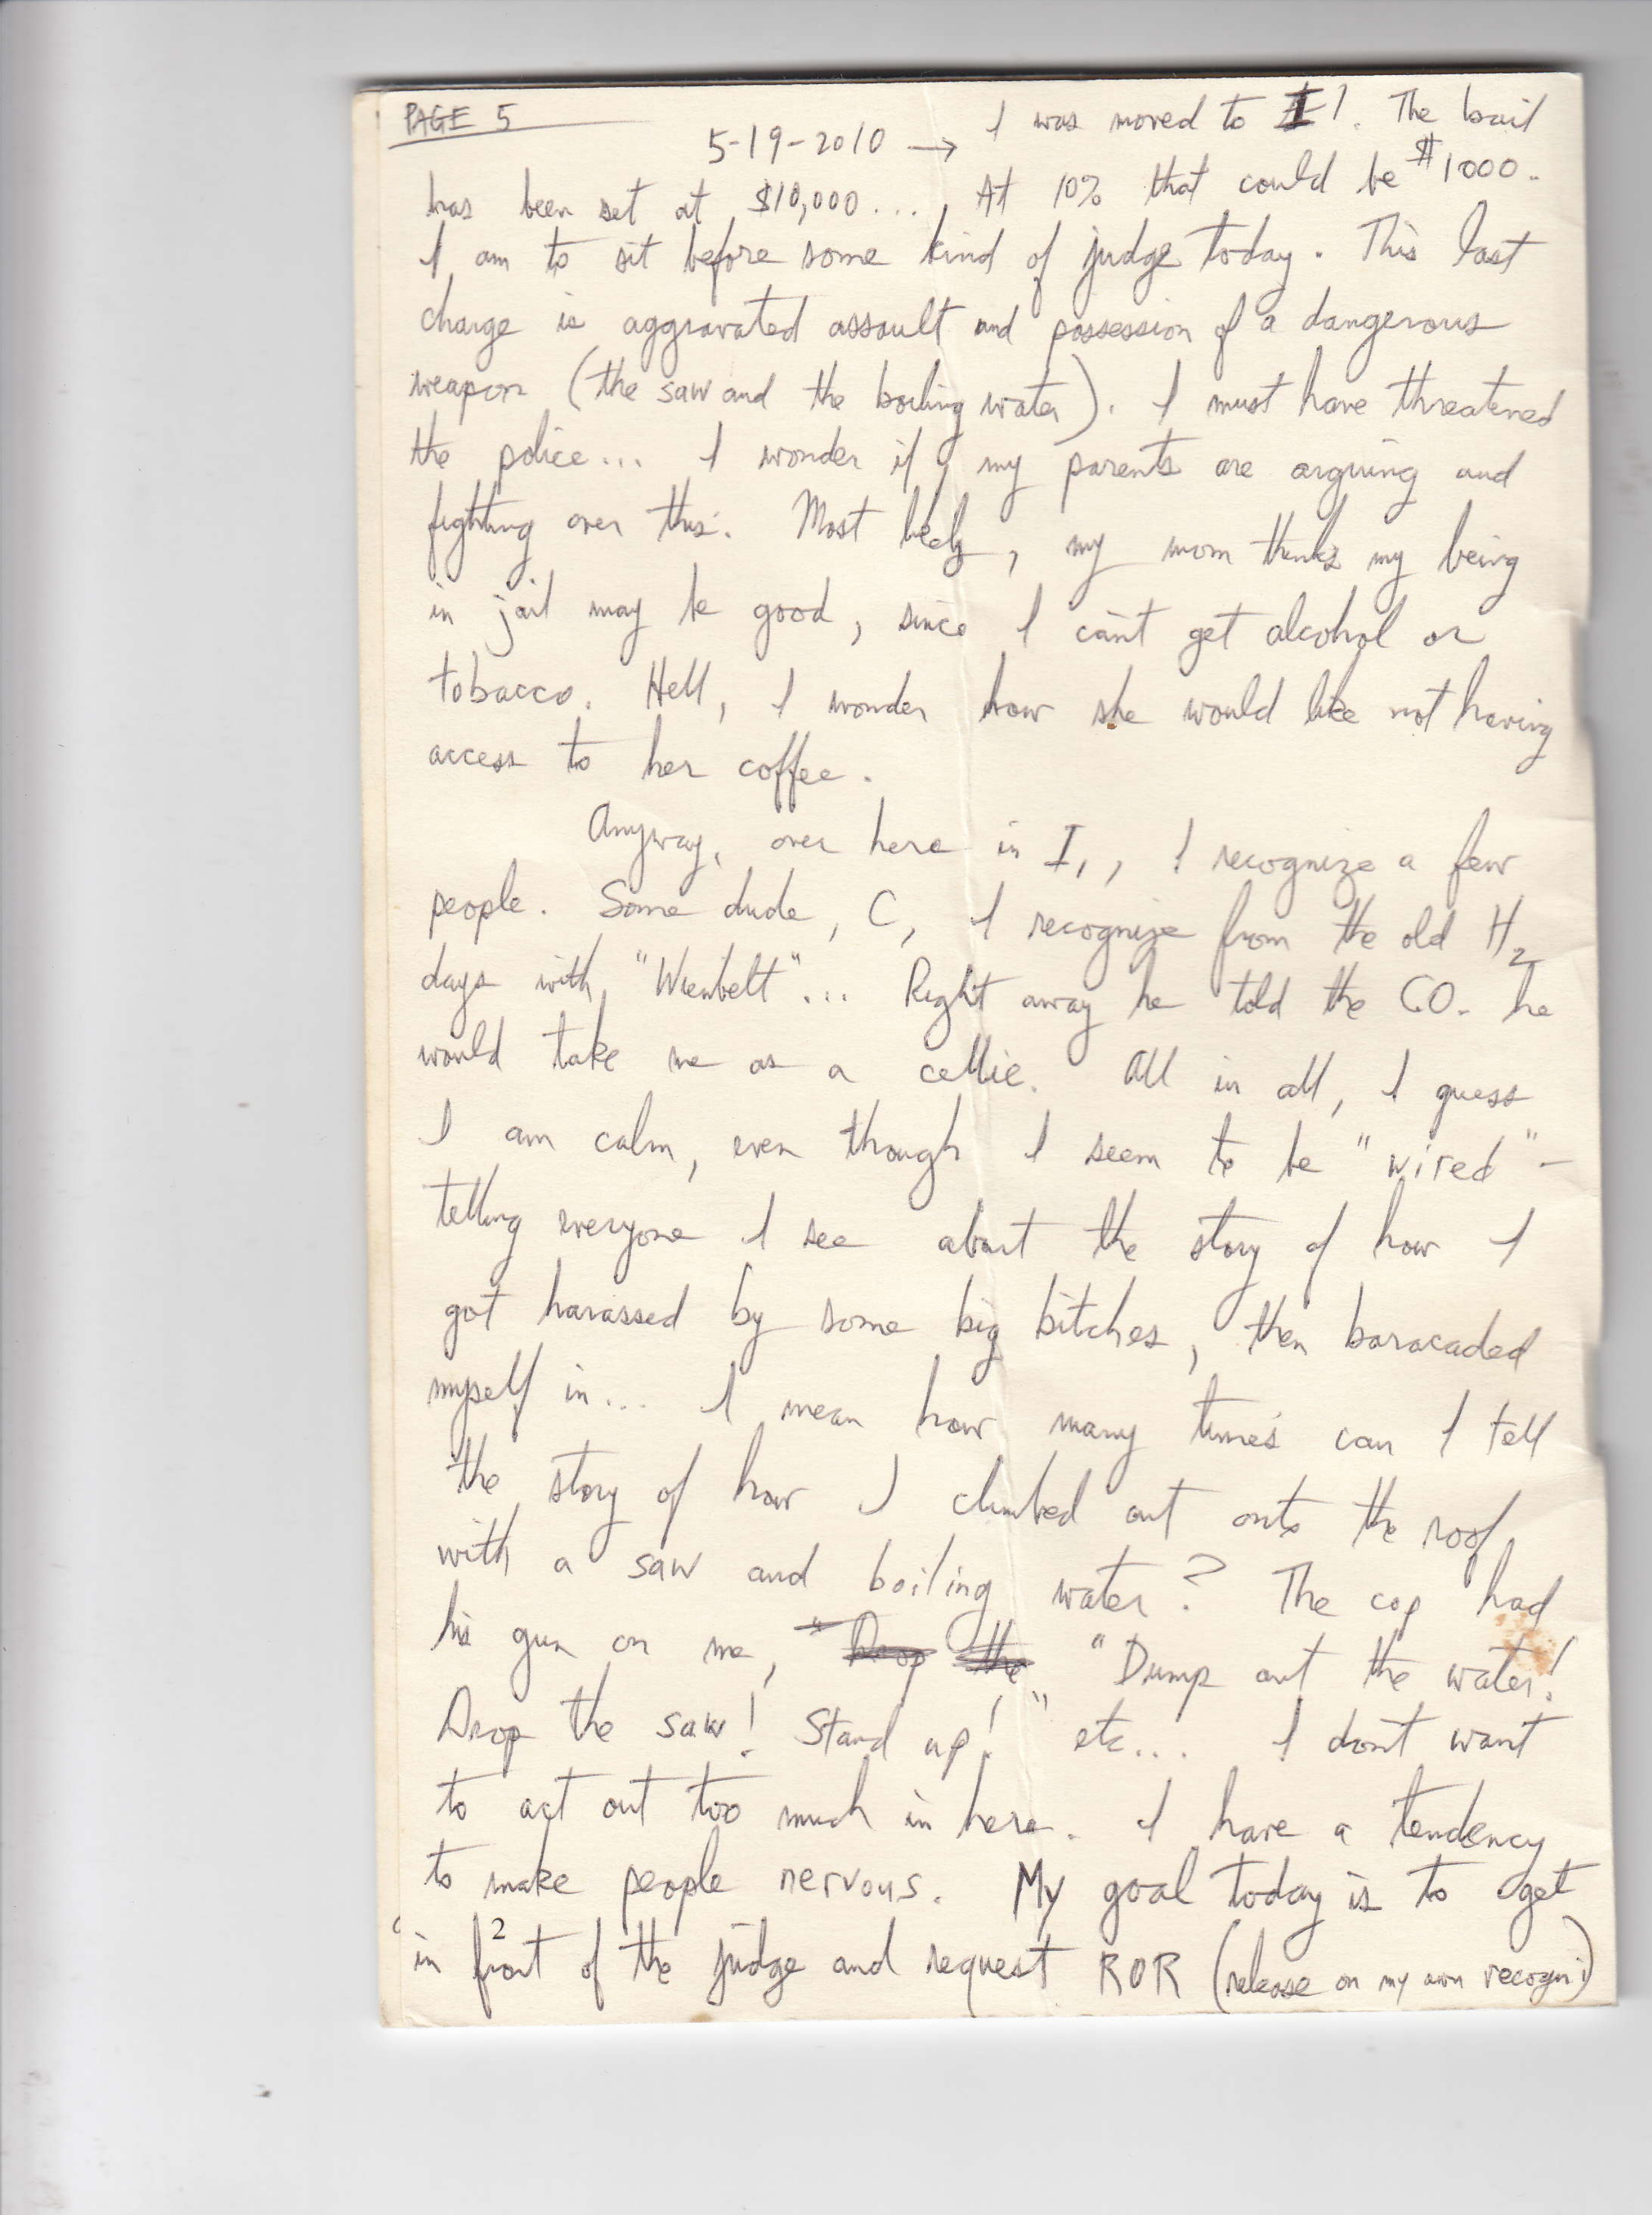 PAGE 5
5-19-2010 → I was moved to I1. The bail
has been set at $10,000.... At 10% that could be $1000.
I am to sit before some kind of judge today. This last
charge is aggravated assault and possession of a dangerous
weapon (the saw and the boiling water). I must have threatened
the police... I wonder if my parents are arguing and
fighting over this. Most likely, my mom thinks my being
in jail may be good, since I can't get alcohol or
tobacco. Hell, I wonder how she would like not having
access to her coffee.
Anyway, over here in I1, I recognize a few
people. Some dude, C, I recognize from the old H2
days with "Wienbelt"... Right away he told the CO. he
would take me as a cellie. All in all, I guess
I am calm, even though I seem to be "wired" -
telling everyone I see about the story of how I
got harassed by some big bitches, then baracaded
myself in... I mean how many times can I tell
the story of how I climbed out onto the roof
with a saw and boiling water? The cop had
his gun on me, "Drop the "Dump out the water!
Drop the saw! Stand up!" etc... I don't want
to act out too much in here. I have a tendency
to make people nervous. My goal today is to get
in front of the judge and request ROR (release on my own recogni)
2